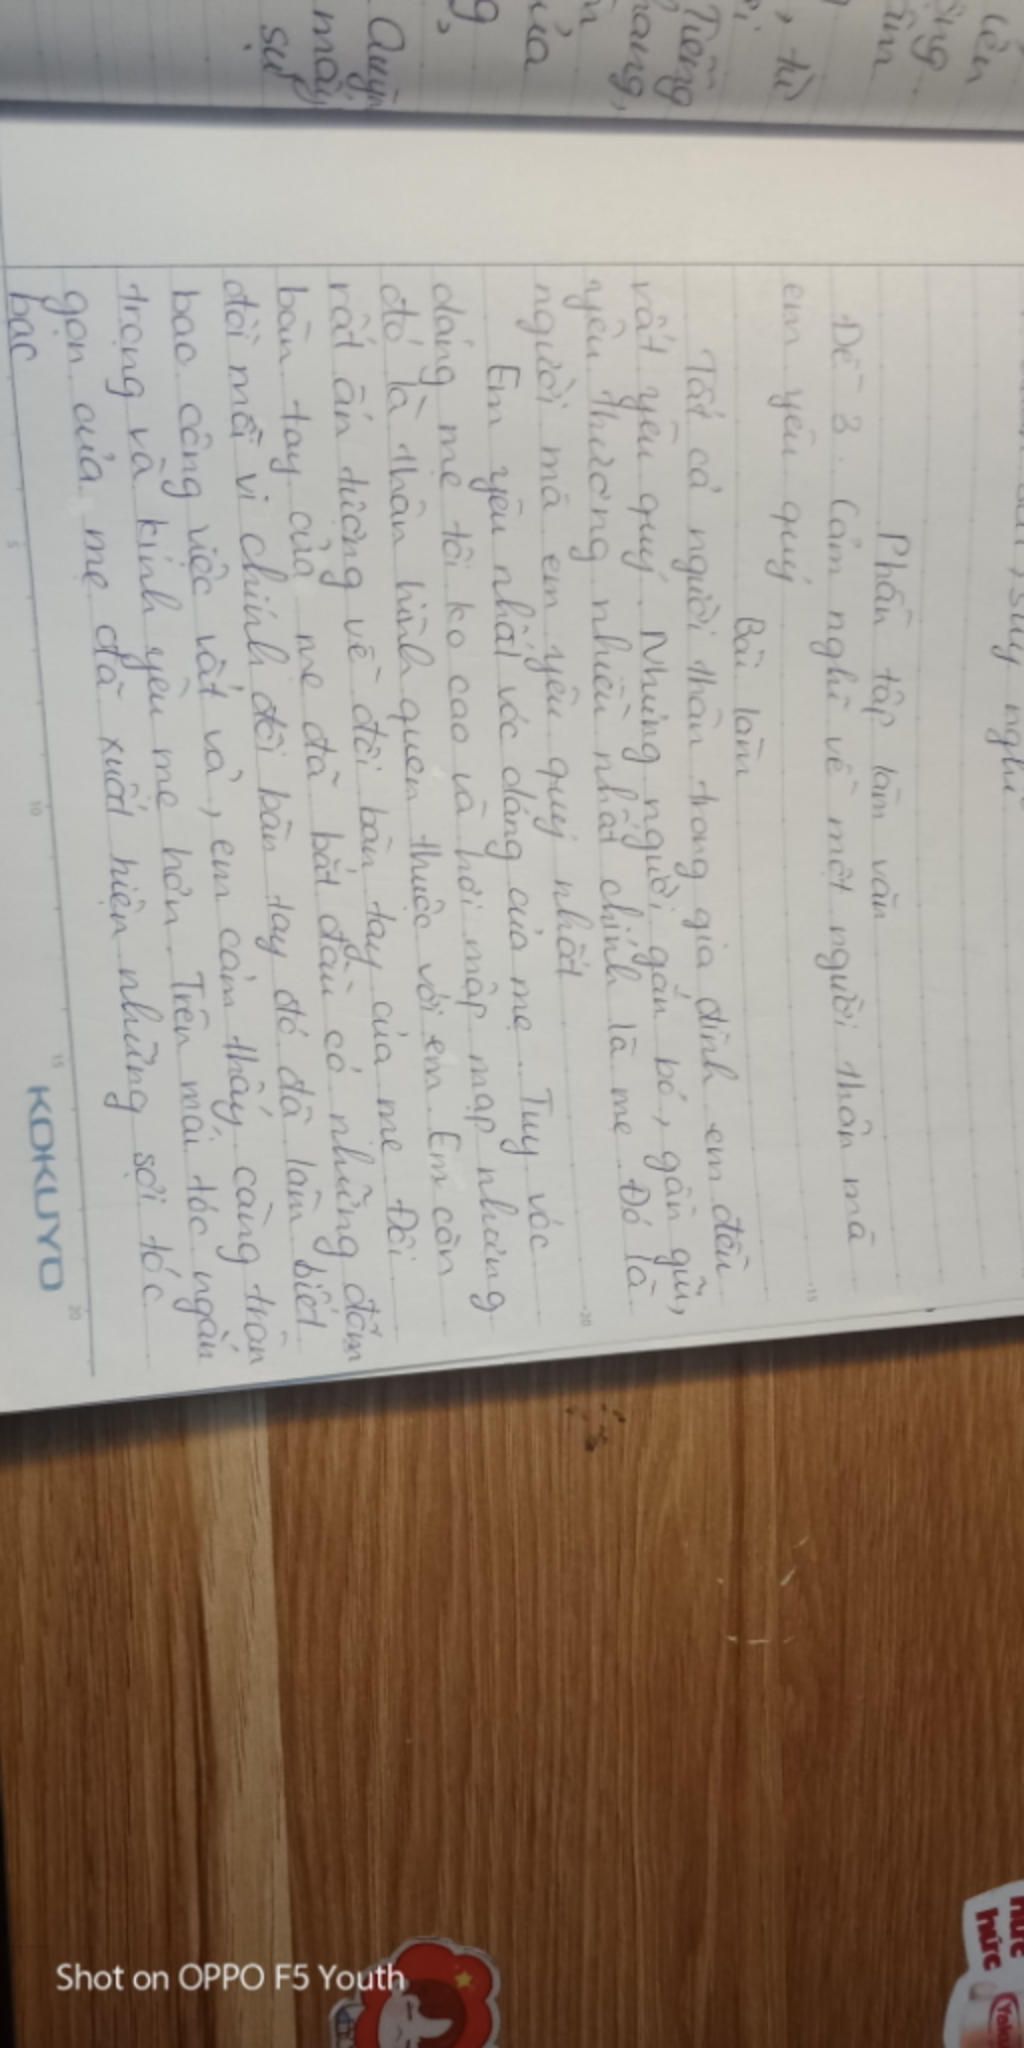 suy nghĩ
Phần tập làm văn
Đề 3. Cảm nghĩ về một người thân mà
em yêu quý
Bài làm
Tất cả người thân trong gia đình em đều
rất yêu quý. Những người gắn bó, gần gũi,
yêu thương nhiều nhất chính là mẹ. Đó là
người mà em yêu quý nhất
Em yêu nhất vóc dáng của mẹ. Tuy vóc
dáng mẹ tôi ko cao và hơi mập mạp nhưng
đó là thân hình quen thuộc với em. Em còn
rất ấn tượng về đôi bàn tay của mẹ. Đôi
bàn tay của mẹ đã bắt đầu có những đốm
đồi mồi vì chính đôi bàn tay đó đã làm biết
bao công việc vất vả, em cảm thấy càng trân
trọng và kính yêu mẹ hơn. Trên mái tóc ngắn
gọn của mẹ đã xuất hiện những sợi tóc
bạc
KOKUYO
5
10
15
20
15
20
, từ
Tiếng
của
Quỳn
mày
sự
hức
Shot on OPPO F5 Youth